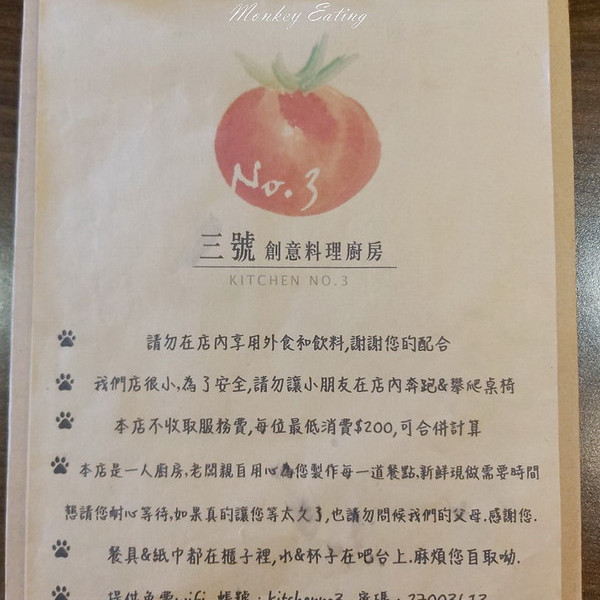 Monkey Eating
No.3
三號 創意料理廚房
KITCHEN NO.3
請勿在店內享用外食和飲料,謝謝您的配合
我們店很小,為了安全,請勿讓小朋友在店內奔跑&攀爬桌椅
本店不收取服務費,每位最低消費$200,可合併計算
本店是一人廚房,老闆親自用心為您製作每一道餐點,新鮮現做需要時間
懇請您耐心等待,如果真的讓您等太久了,也請勿問候我們的父母.感謝您.
餐具&紙巾都在櫃子裡,水&杯子在吧台上.麻煩您自取呦.
提供免費wifi 帳號:kitchenno3 密碼: